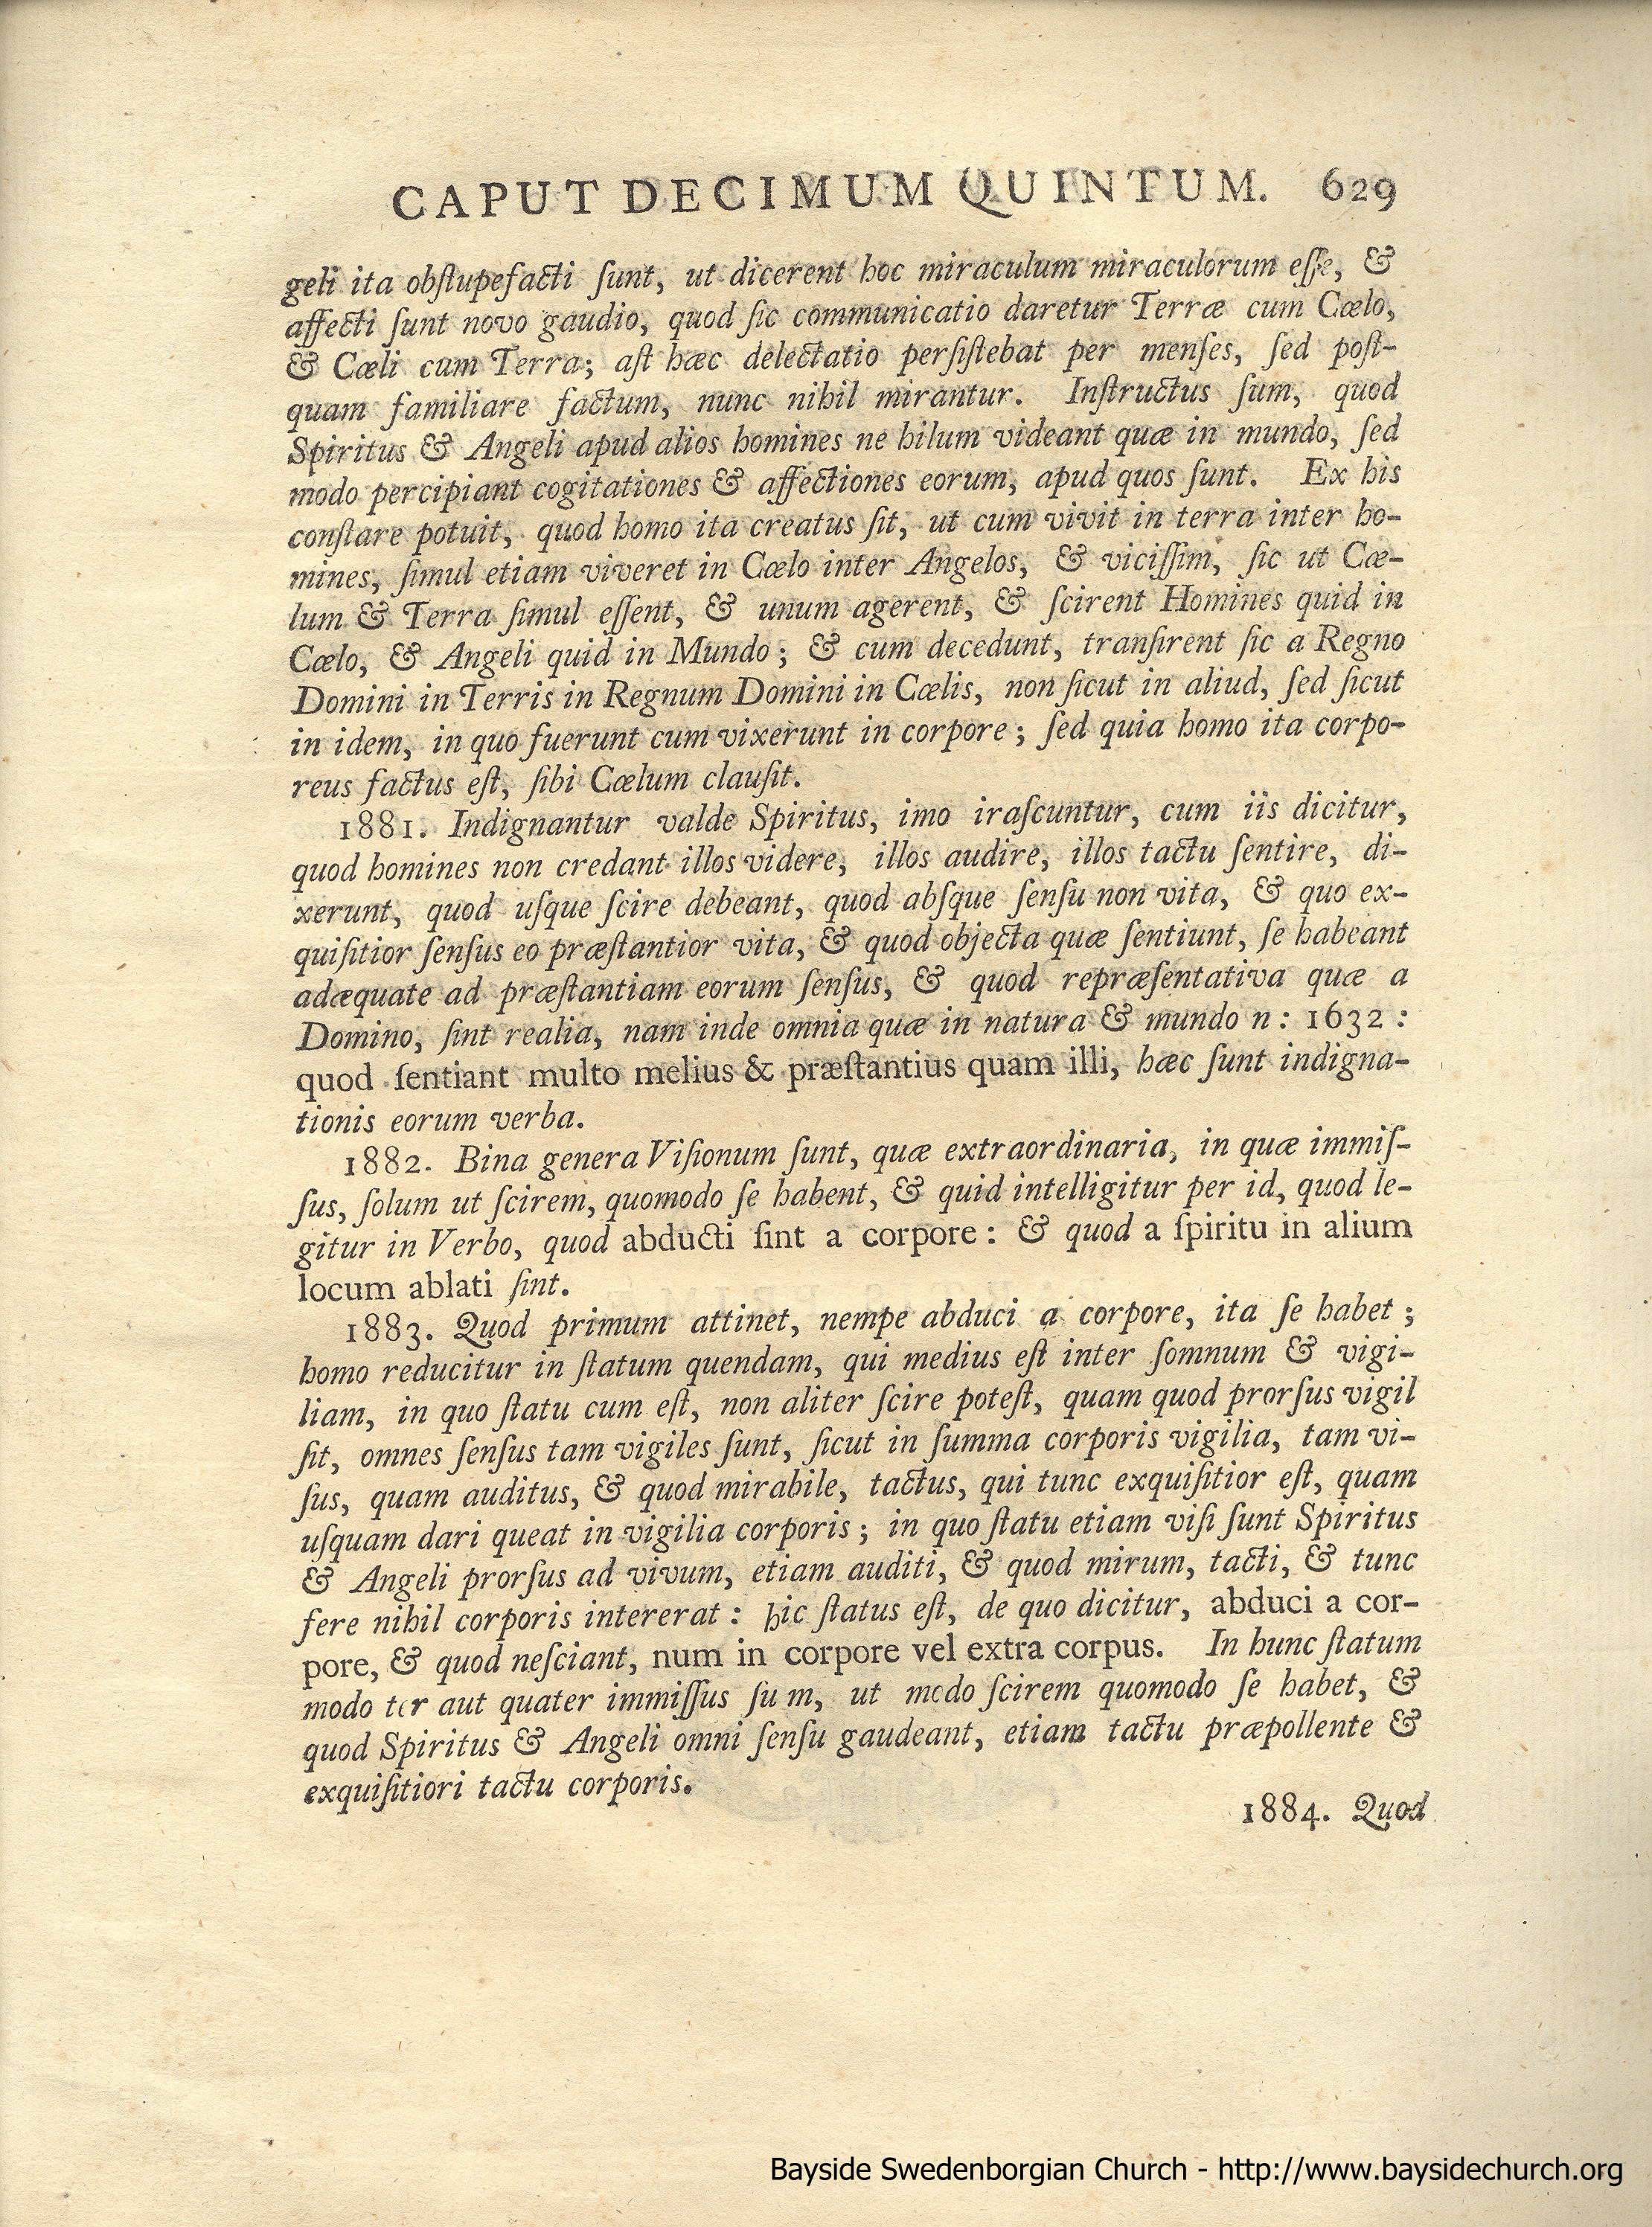 CAPUT DECIMUM QUINTUM. 629
geli ita obſtupefacti ſunt, ut dicerent hoc miraculum miraculorum eſſe, &
affecti ſunt novo gaudio, quod ſic communicatio daretur Terræ cum Cœlo,
& Cœli cum Terra; aſt hæc delectatio perſiſtebat per menſes, ſed poſt-
quam familiare factum, nunc nihil mirantur. Inſtructus ſum, quod
Spiritus & Angeli apud alios homines ne hilum videant quæ in mundo, ſed
modo percipiant cogitationes & affectiones eorum, apud quos ſunt. Ex his
conſtare potuit, quod homo ita creatus ſit, ut cum vivit in terra inter ho-
mines, ſimul etiam viveret in Cœlo inter Angelos, & viciſſim, ſic ut Cœ-
lum & Terra ſimul eſſent, & unum agerent, & ſcirent Homines quid in
Cœlo, & Angeli quid in Mundo; & cum decedunt, tranſirent ſic a Regno
Domini in Terris in Regnum Domini in Cœlis, non ſicut in aliud, ſed ſicut
in idem, in quo fuerunt cum vixerunt in corpore; ſed quia homo ita corpo-
reus factus eſt, ſibi Cœlum clauſit.
1881. Indignantur valde Spiritus, imo iraſcuntur, cum iis dicitur,
quod homines non credant illos videre, illos audire, illos tactu ſentire, di-
xerunt, quod uſque ſcire debeant, quod abſque ſenſu non vita, & quo ex-
quiſitior ſenſus eo præſtantior vita, & quod objecta quæ ſentiunt, ſe habeant
adæquate ad præſtantiam eorum ſenſus, & quod repræſentativa quæ a
Domino, ſint realia, nam inde omnia quæ in natura & mundo n: 1632:
quod ſentiant multo melius & præſtantius quam illi, hæc ſunt indigna-
tionis eorum verba.
1882. Bina genera Viſionum ſunt, quæ extraordinaria, in quæ immiſ-
ſus, ſolum ut ſcirem, quomodo ſe habent, & quid intelligitur per id, quod le-
gitur in Verbo, quod abducti ſint a corpore: & quod a ſpiritu in alium
locum ablati ſint.
1883. Quod primum attinet, nempe abduci a corpore, ita ſe habet;
homo reducitur in ſtatum quendam, qui medius eſt inter ſomnum & vigi-
liam, in quo ſtatu cum eſt, non aliter ſcire poteſt, quam quod prorſus vigil
ſit, omnes ſenſus tam vigiles ſunt, ſicut in ſumma corporis vigilia, tam vi-
ſus, quam auditus, & quod mirabile, tactus, qui tunc exquiſitior eſt, quam
uſquam dari queat in vigilia corporis; in quo ſtatu etiam viſi ſunt Spiritus
& Angeli prorſus ad vivum, etiam auditi, & quod mirum, tacti, & tunc
fere nihil corporis intererat: hic ſtatus eſt, de quo dicitur, abduci a cor-
pore, & quod neſciant, num in corpore vel extra corpus. In hunc ſtatum
modo ter aut quater immiſſus ſum, ut modo ſcirem quomodo ſe habet, &
quod Spiritus & Angeli omni ſenſu gaudeant, etiam tactu præpollente &
exquiſitiori tactu corporis.
1884. Quod
Bayside Swedenborgian Church - http://www.baysidechurch.org